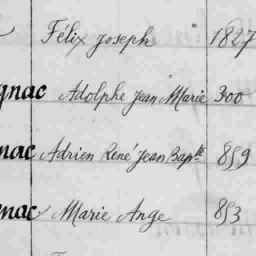 Félix Joseph 1827
gnac Adolphe Jean Marie 300
nac Adrien René Jean Bapte 859
nac Marie Ange 853